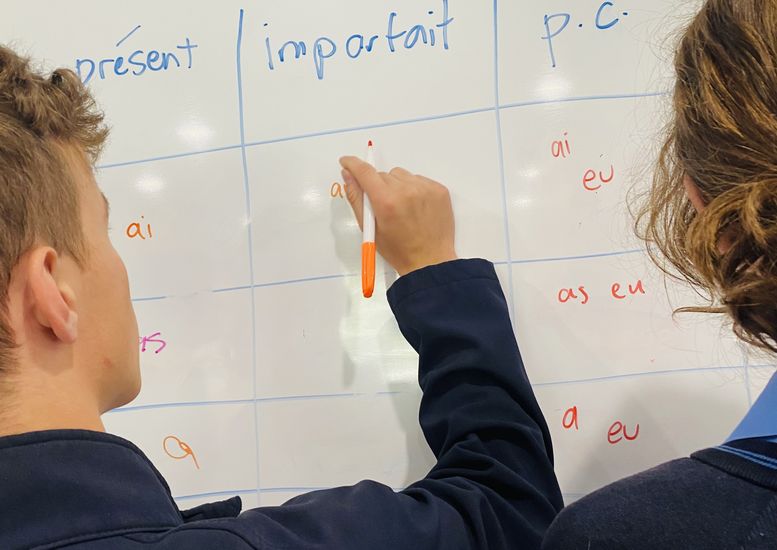 présent imparfait p.c.
ai
eu
ai
as eu
as
a eu
a